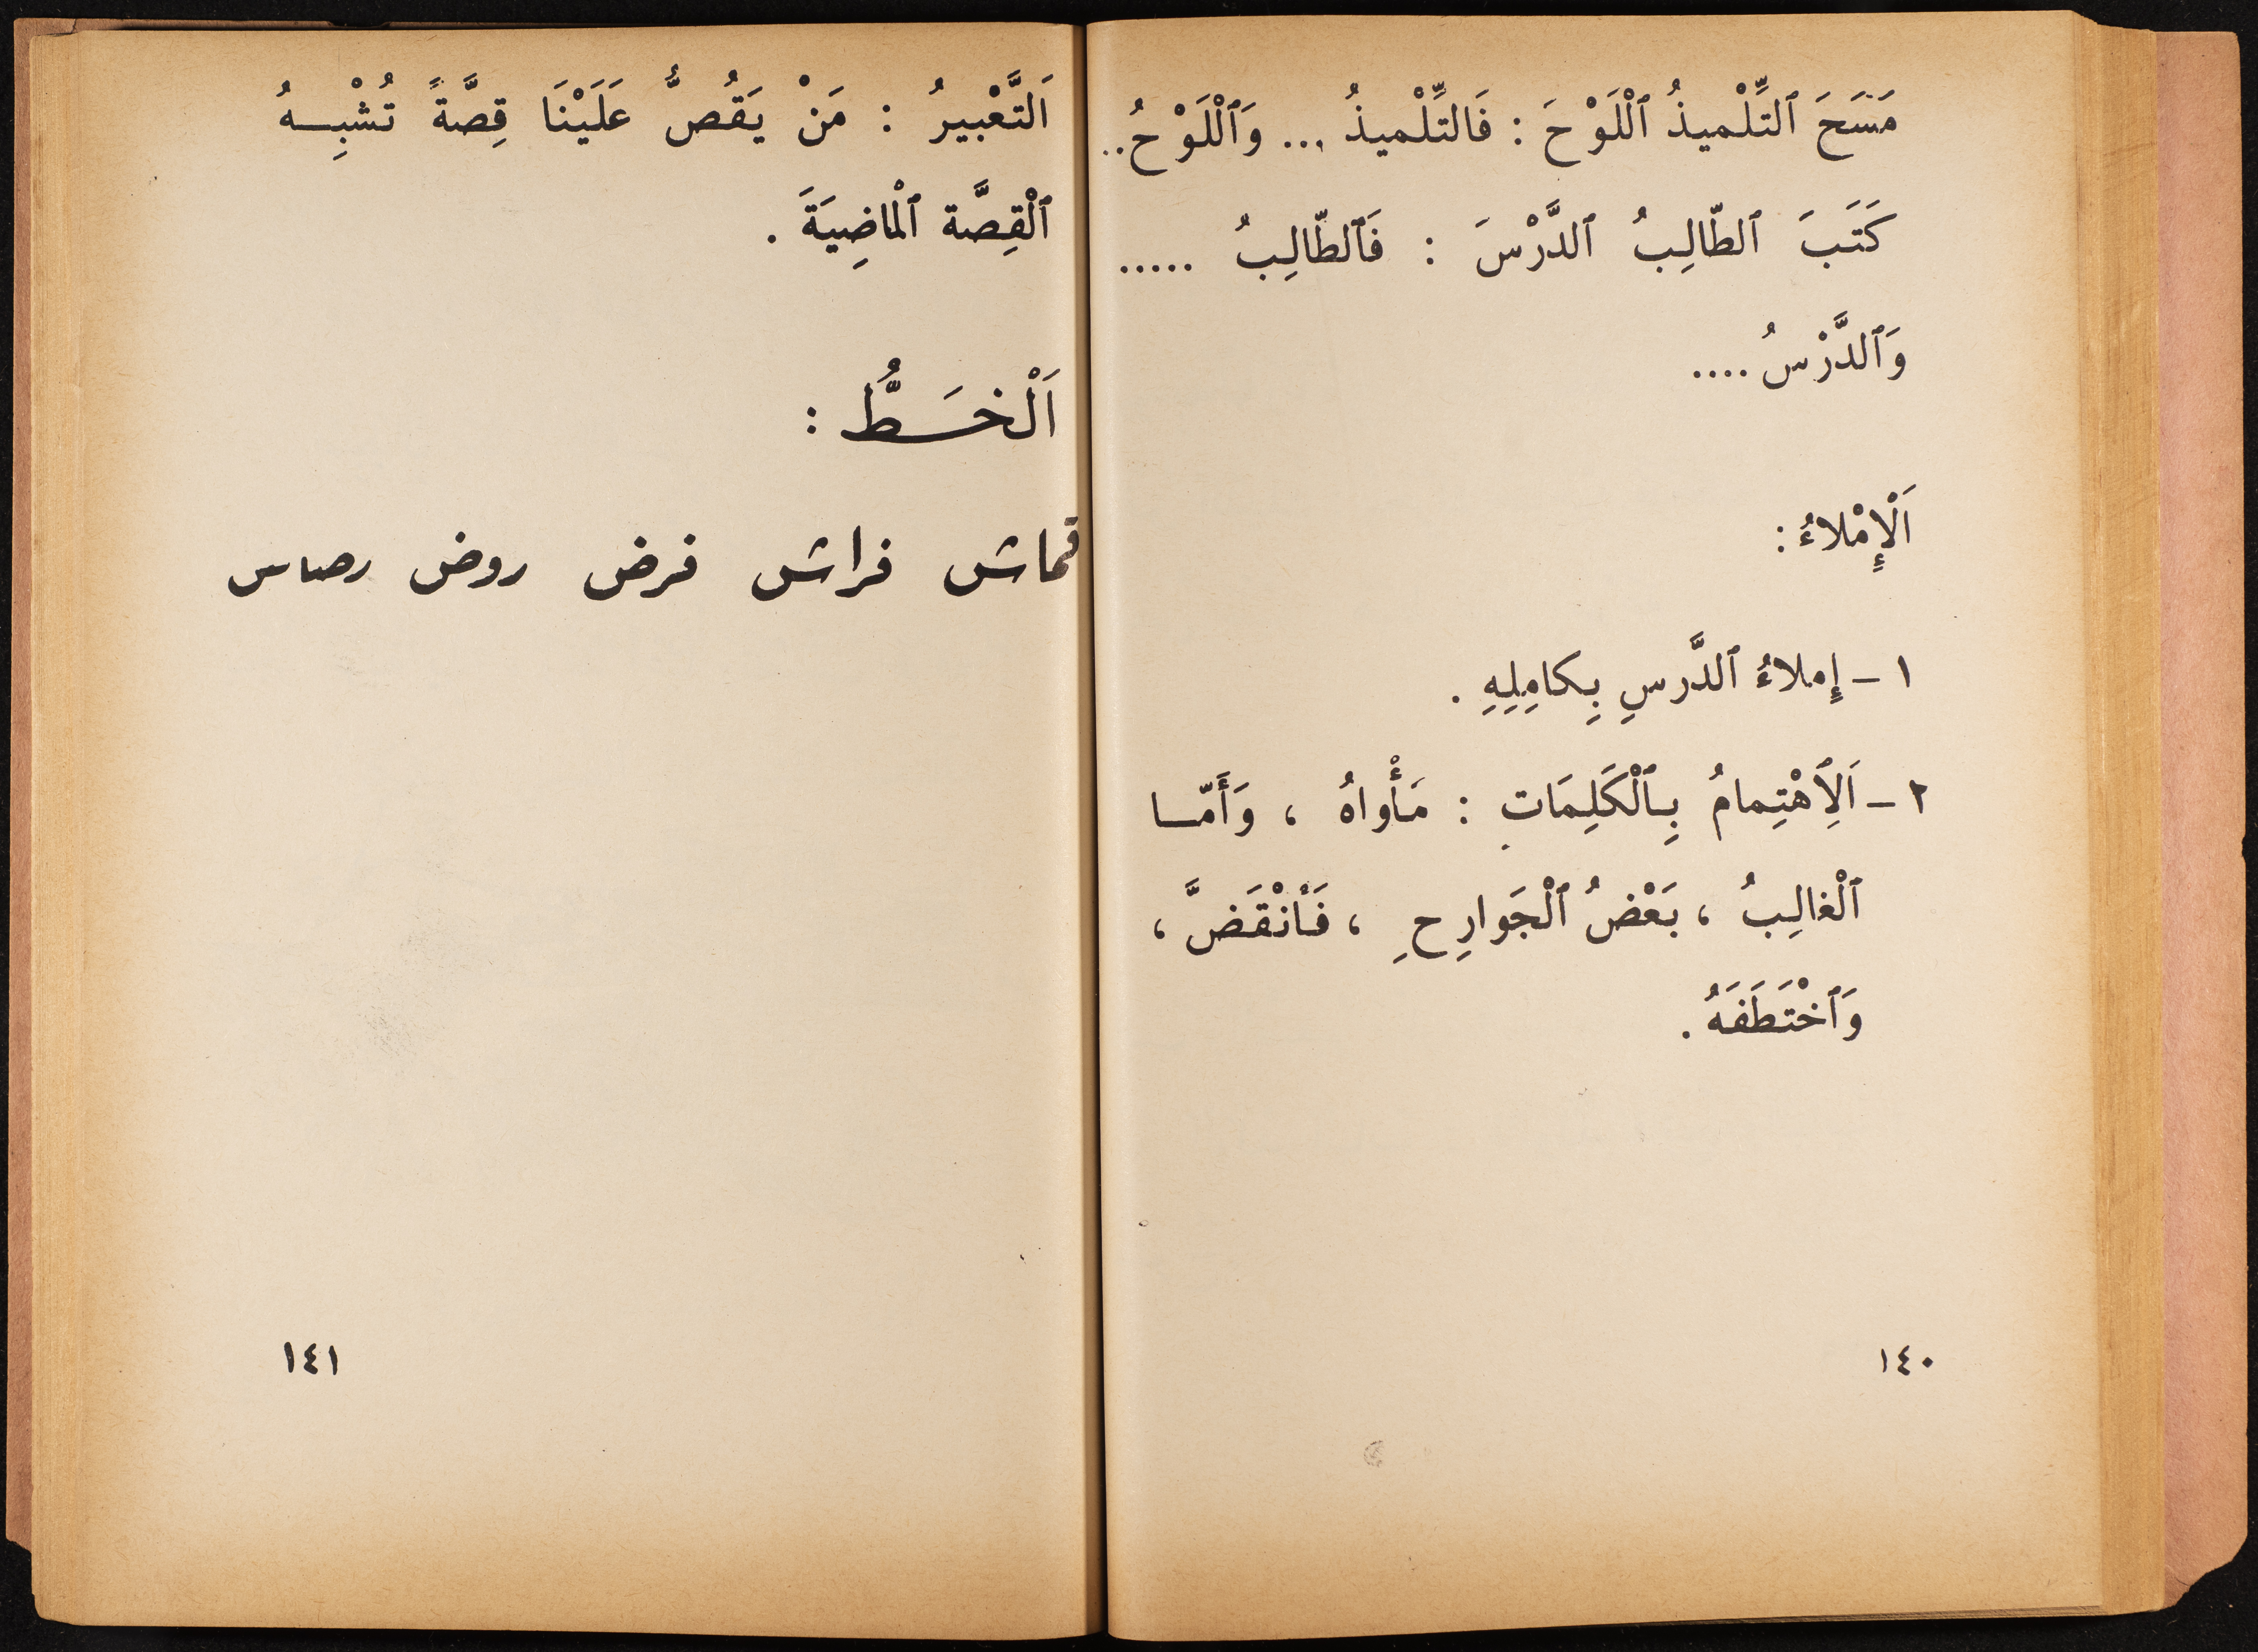 مَسَحَ ٱلتِّلْميذُ ٱللَّوْحَ : فَالتِّلْميذُ ... وَٱللَّوْحُ..
كَتَبَ ٱلطّالِبُ ٱلدَّرْسَ : فَٱلطّالِبُ .....
وَٱلدَّرْسُ ....
اَلْإِمْلاءُ :
١ - إِملاءُ ٱلدَّرسِ بِكامِلِهِ .
٢ - اَلِٱهْتِمامُ بِٱلْكَلِمَاتِ : مَأْواهُ ، وَأَمّا
ٱلْغالِبُ ، بَعْضُ ٱلْجَوارِحِ ، فَٱنْقَضَّ ،
وَٱخْتَطَفَهُ .
١٤٠
اَلتَّعْبيرُ : مَنْ يَقُصُّ عَلَيْنَا قِصَّةً تُشْبِهُ
ٱلْقِصَّة ٱلْماضِيَةَ .
اَلْخَطُّ :
قماش فراش فرض روض رصاص
١٤١